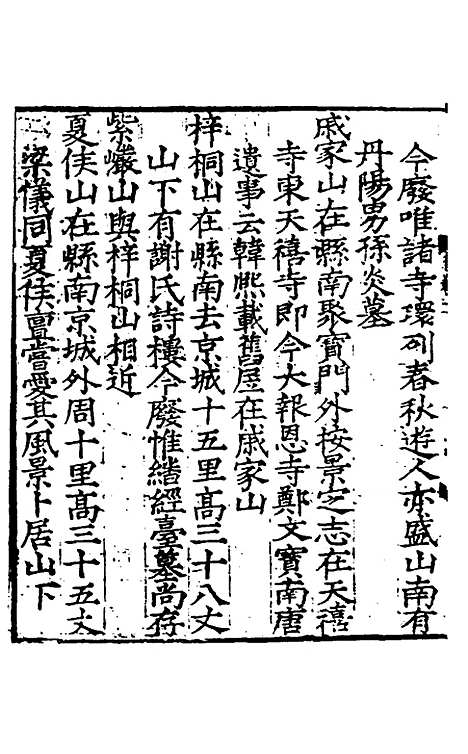 今廢唯諸寺環列春秋遊人亦盛山南有
丹陽男孫炎墓
戚家山在縣南聚寳門外按景定志在天禧
寺東天禧寺即今大報恩寺鄭文寳南唐
遺事云韓熈載舊居在戚家山
梓桐山在縣南去京城十五里髙三十八丈
山下有謝氏詩樓今廢惟繙經臺墓尚存
紫巖山與梓桐山相近
夏侯山在縣南京城外周十里髙三十五丈
梁儀同夏侯亶嘗愛其風景卜居山下